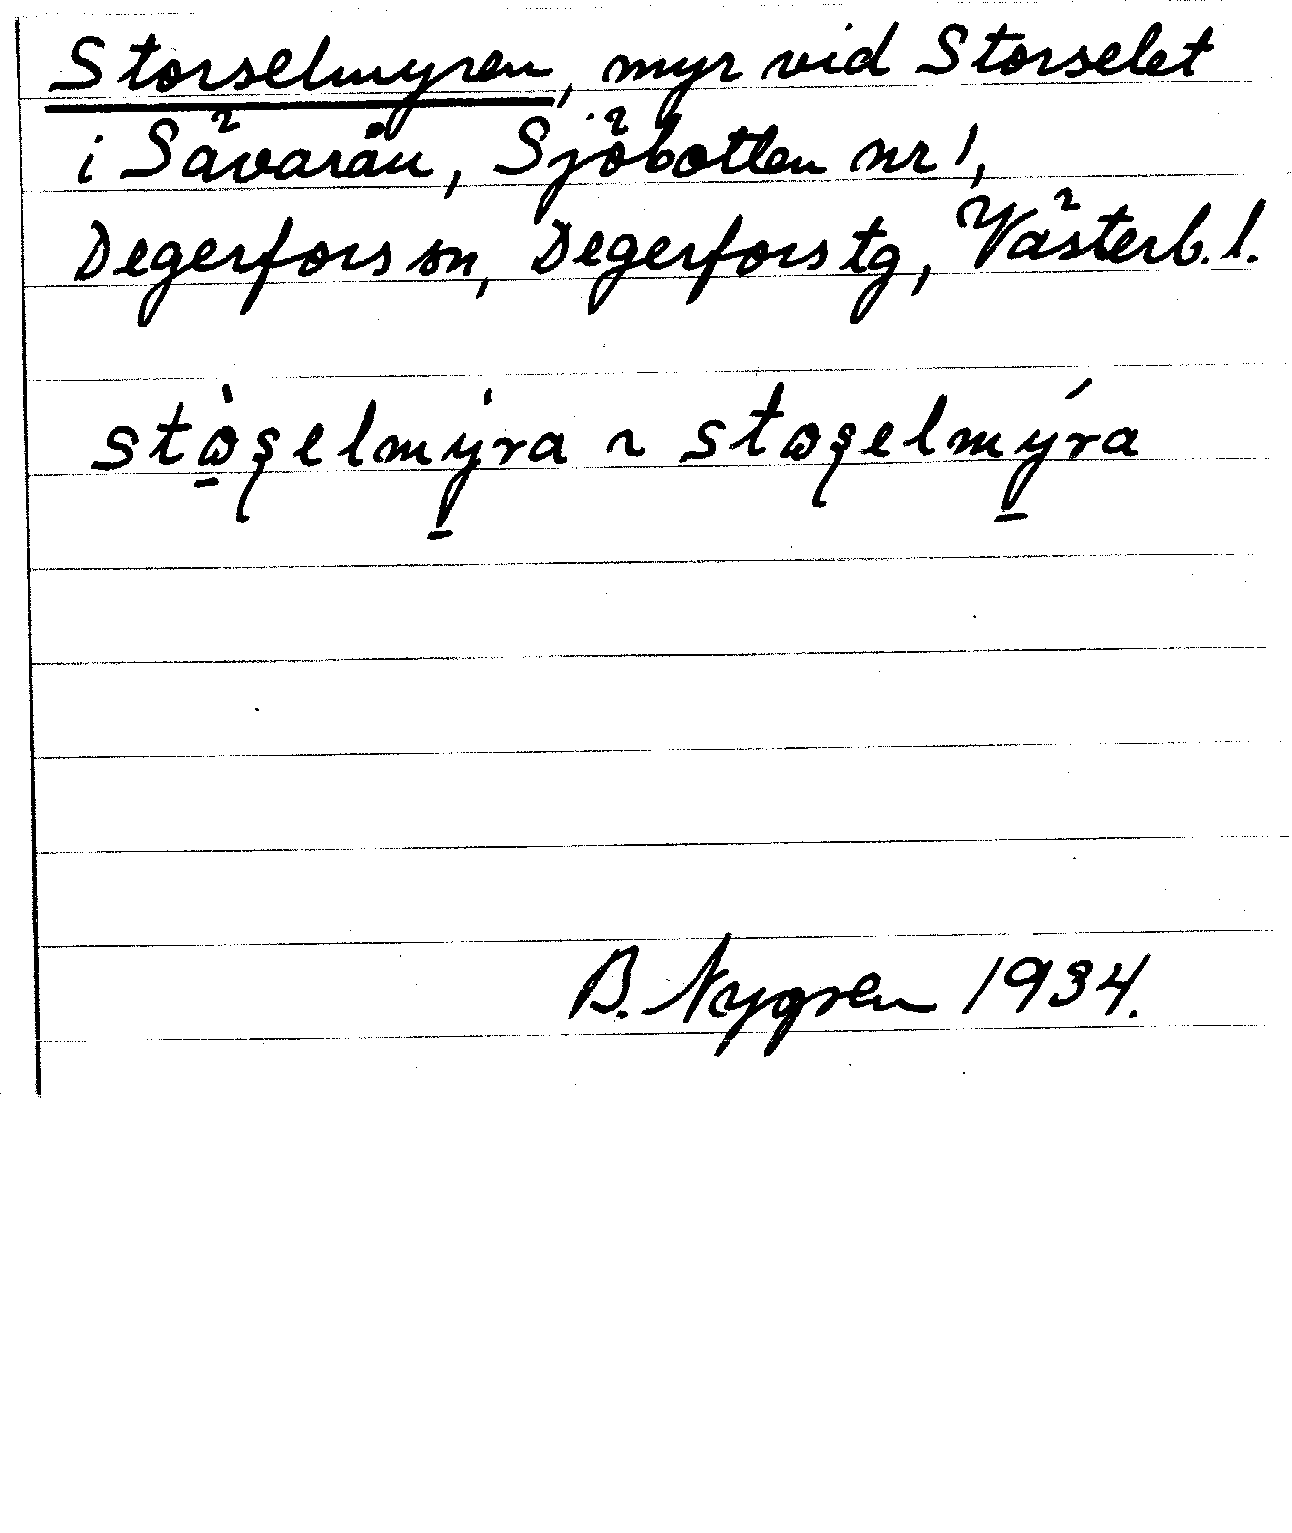 Storselmyren, myr vid Storselet
i Sävarån, Sjöbotten nr 1,
Degerfors sn, Degerfors tg, Västerb. l.
stɷ̠̀ʂelmẏ̠ra ~ stɷʂelmý̠ra
B. Nygren 1934.